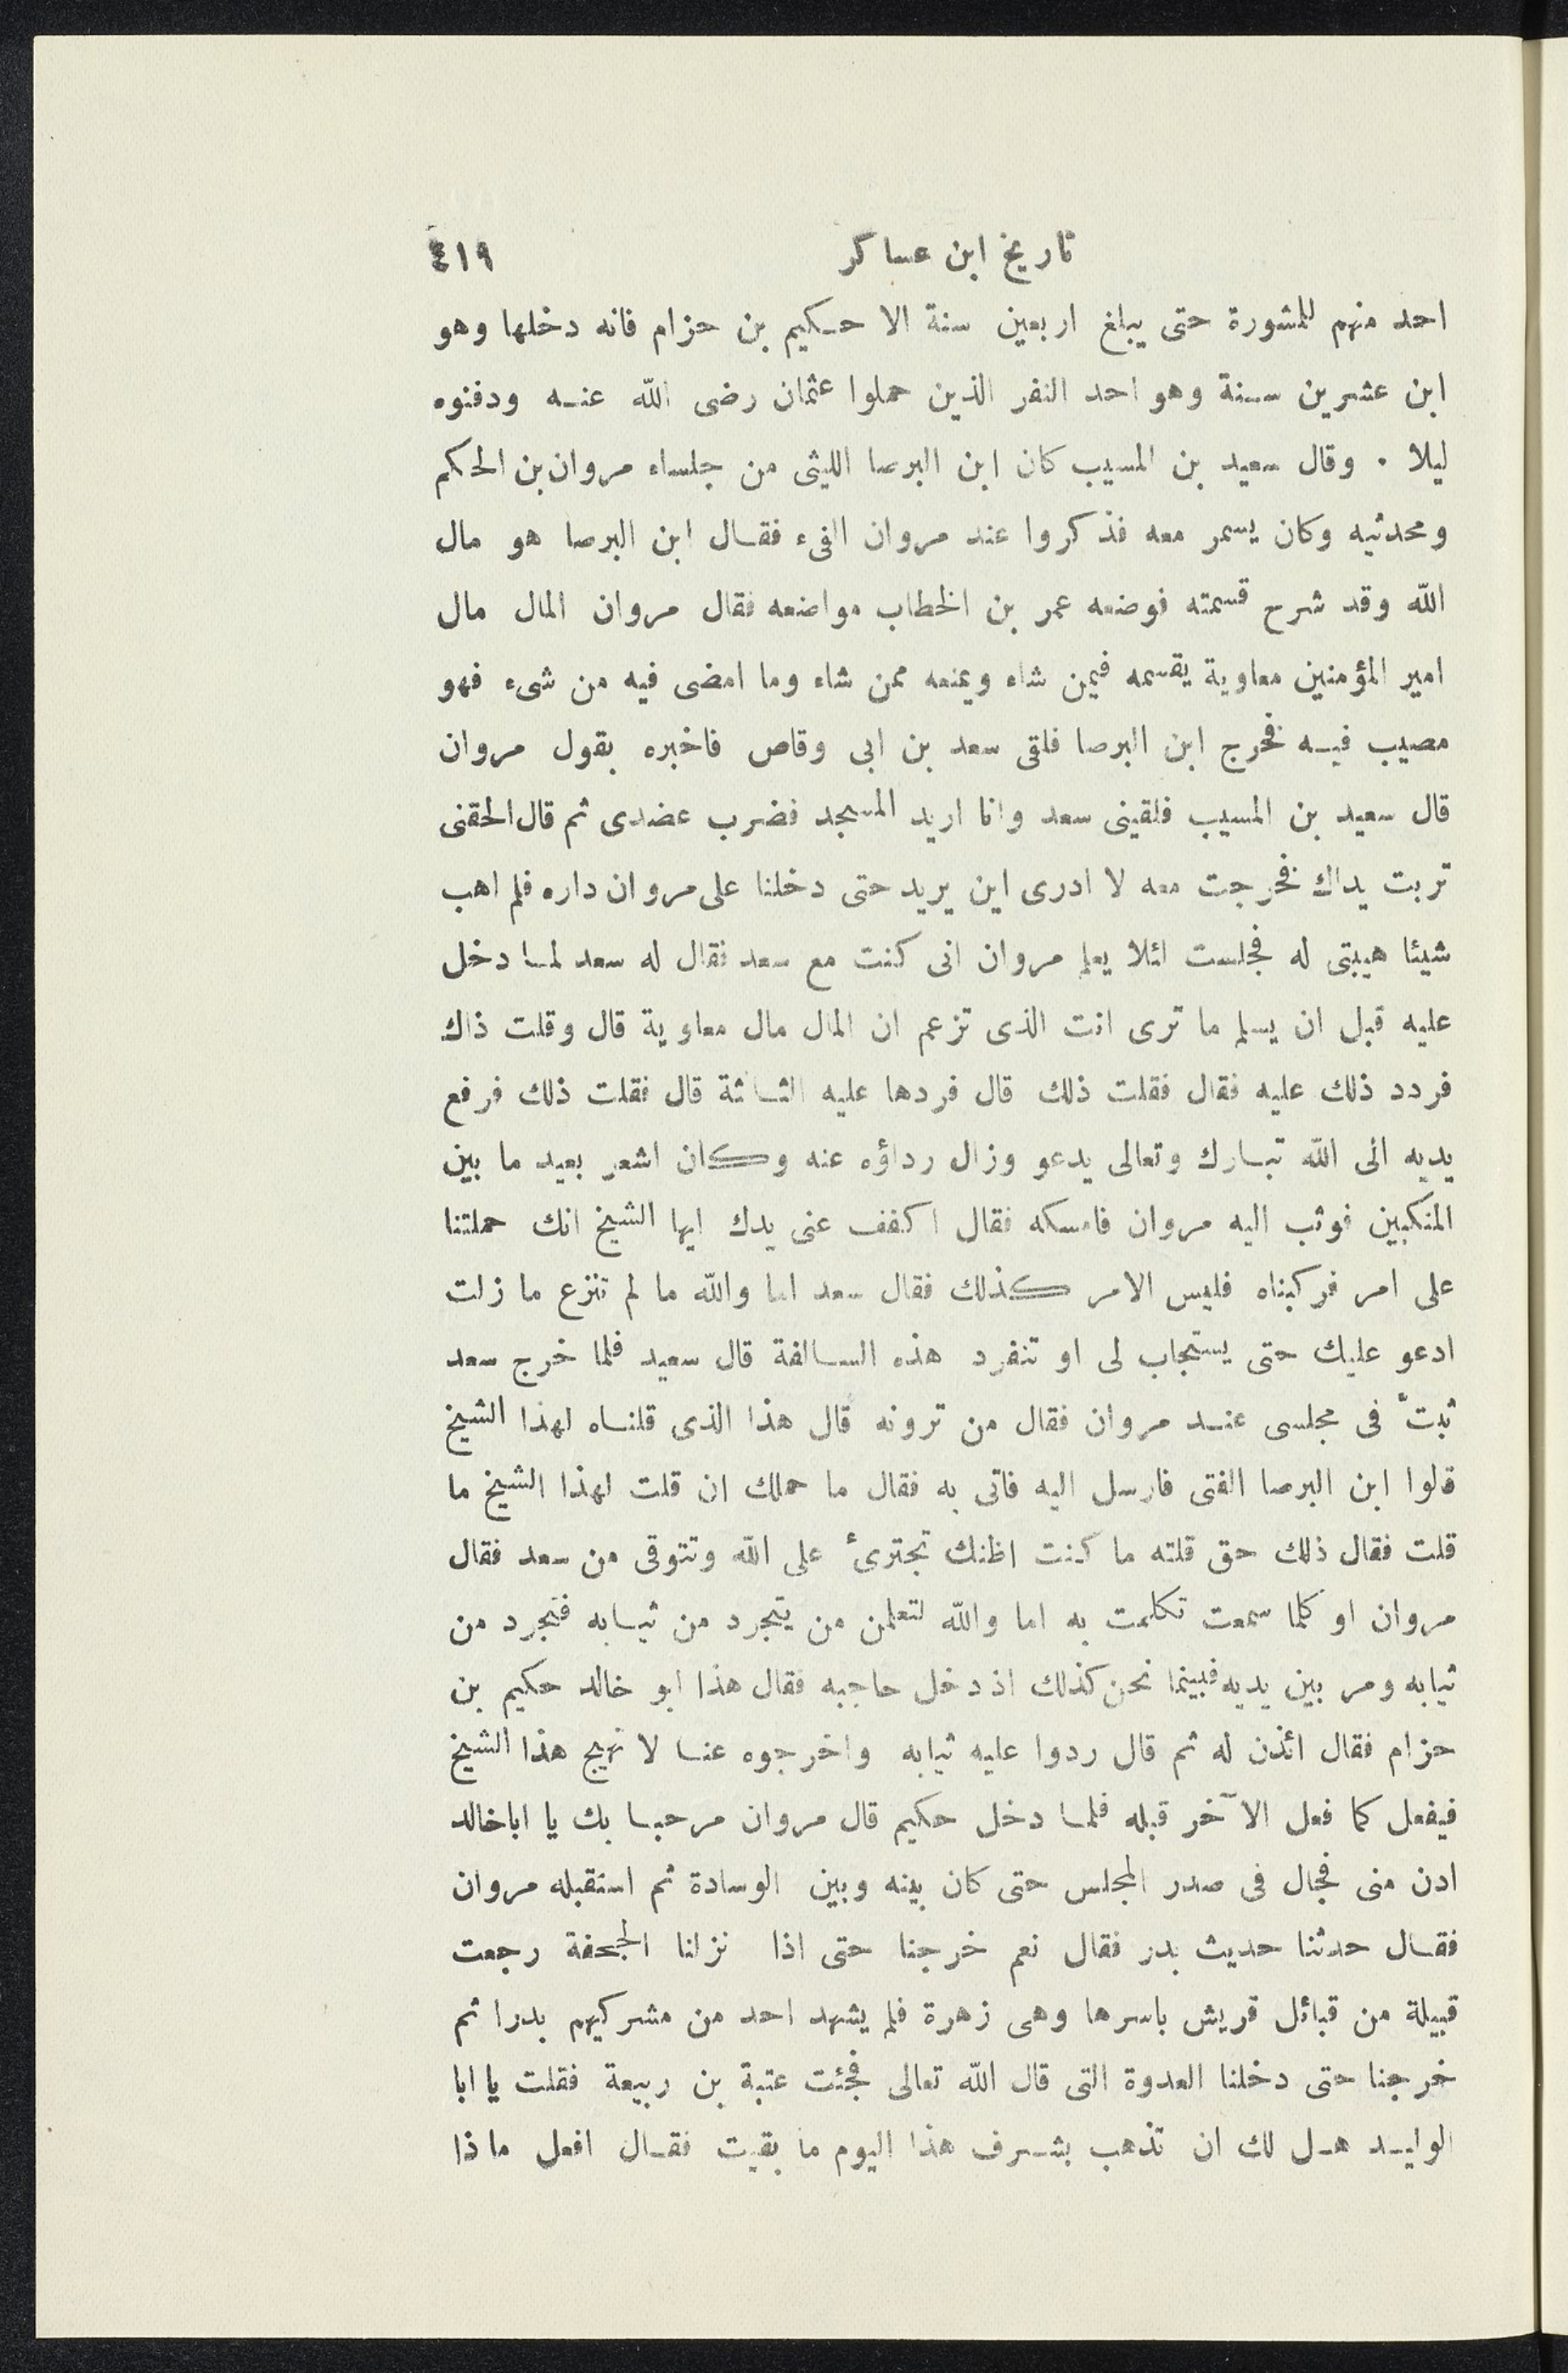 تاريخ ابن عساكر ٤١٩
احد منهم للمشورة حتى يبلغ اربعين سنة الا حكيم بن حزام فانه دخلها وهو
ابن عشرين سنة وهو احد النفر الذين حملوا عثمان رضى الله عنه ودفنوه
ليلا . وقال سعيد بن المسيب كان ابن البرصا الليثى من جلساء مروان بن الحكم
ومحدثيه وكان يسمر معه فذكروا عند مروان الفىء فقال ابن البرصا هو مال
الله وقد شرح قسمته فوضعه عمر بن الخطاب مواضعه فقال مروان المال مال
امير المؤمنين معاوية يقسمه فيمن شاء ويمنعه ممن شاء وما امضى فيه من شىء فهو
مصيب فيه فخرج ابن البرصا فلقى سعد بن ابى وقاص فاخبره بقول مروان
قال سعيد بن المسيب فلقينى سعد وانا اريد المسجد فضرب عضدى ثم قال الحقنى
تربت يداك فخرجت معه لا ادرى اين يريد حتى دخلنا على مروان داره فلم اهب
شيئا هيبتى له فجلست لئلا يعلم مروان انى كنت مع سعد فقال له سعد لما دخل
عليه قبل ان يسلم ما ترى انت الذى تزعم ان المال مال معاوية قال وقلت ذاك
فردد ذلك عليه فقال فقلت ذلك قال فردها عليه الثالثة قال فقلت ذلك فرفع
يديه الى الله تبارك وتعالى يدعو وزال رداؤه عنه وكان اشعر بعيد ما بين
المنكبين فوثب اليه مروان فامسكه فقال اكفف عنى يدك ايها الشيخ انك حملتنا
على امر فركبناه فليس الامر كذلك فقال سعد اما والله ما لم تنزع ما زلت
ادعو عليك حتى يستجاب لى او تنفرد هذه السالفة قال سعيد فلما خرج سعد
ثبتّ فى مجلسى عند مروان فقال من ترونه قال هذا الذى قلناه لهذا الشيخ
قالوا ابن البرصا الفتى فارسل اليه فاتى به فقال ما حملك ان قلت لهذا الشيخ ما
قلت فقال ذلك حق قلته ما كنت اظنك تجترئ على الله وتتوقى من سعد فقال
مروان او كلما سمعت تكلمت به اما والله لتعلمن من يتجرد من ثيابه فتجرد من
ثيابه ومر بين يديه فبينما نحن كذلك اذ دخل حاجبه فقال هذا ابو خالد حكيم بن
حزام فقال ائذن له ثم قال ردوا عليه ثيابه واخرجوه عنا لا نهيج هذا الشيخ
فيفعل كما فعل الآخر قبله فلما دخل حكيم قال مروان مرحبا بك يا ابا خالد
ادن منى فجال فى صدر المجلس حتى كان بينه وبين الوسادة ثم استقبله مروان
فقال حدثنا حديث بدر فقال نعم خرجنا حتى اذا نزلنا الجحفة رجعت
قبيلة من قبائل قريش باسرها وهى زهرة فلم يشهد احد من مشركيهم بدرا ثم
خرجنا حتى دخلنا العدوة التى قال الله تعالى فجئت عتبة بن ربيعة فقلت يا ابا
الوليد هل لك ان تذهب بشرف هذا اليوم ما بقيت فقال افعل ماذا